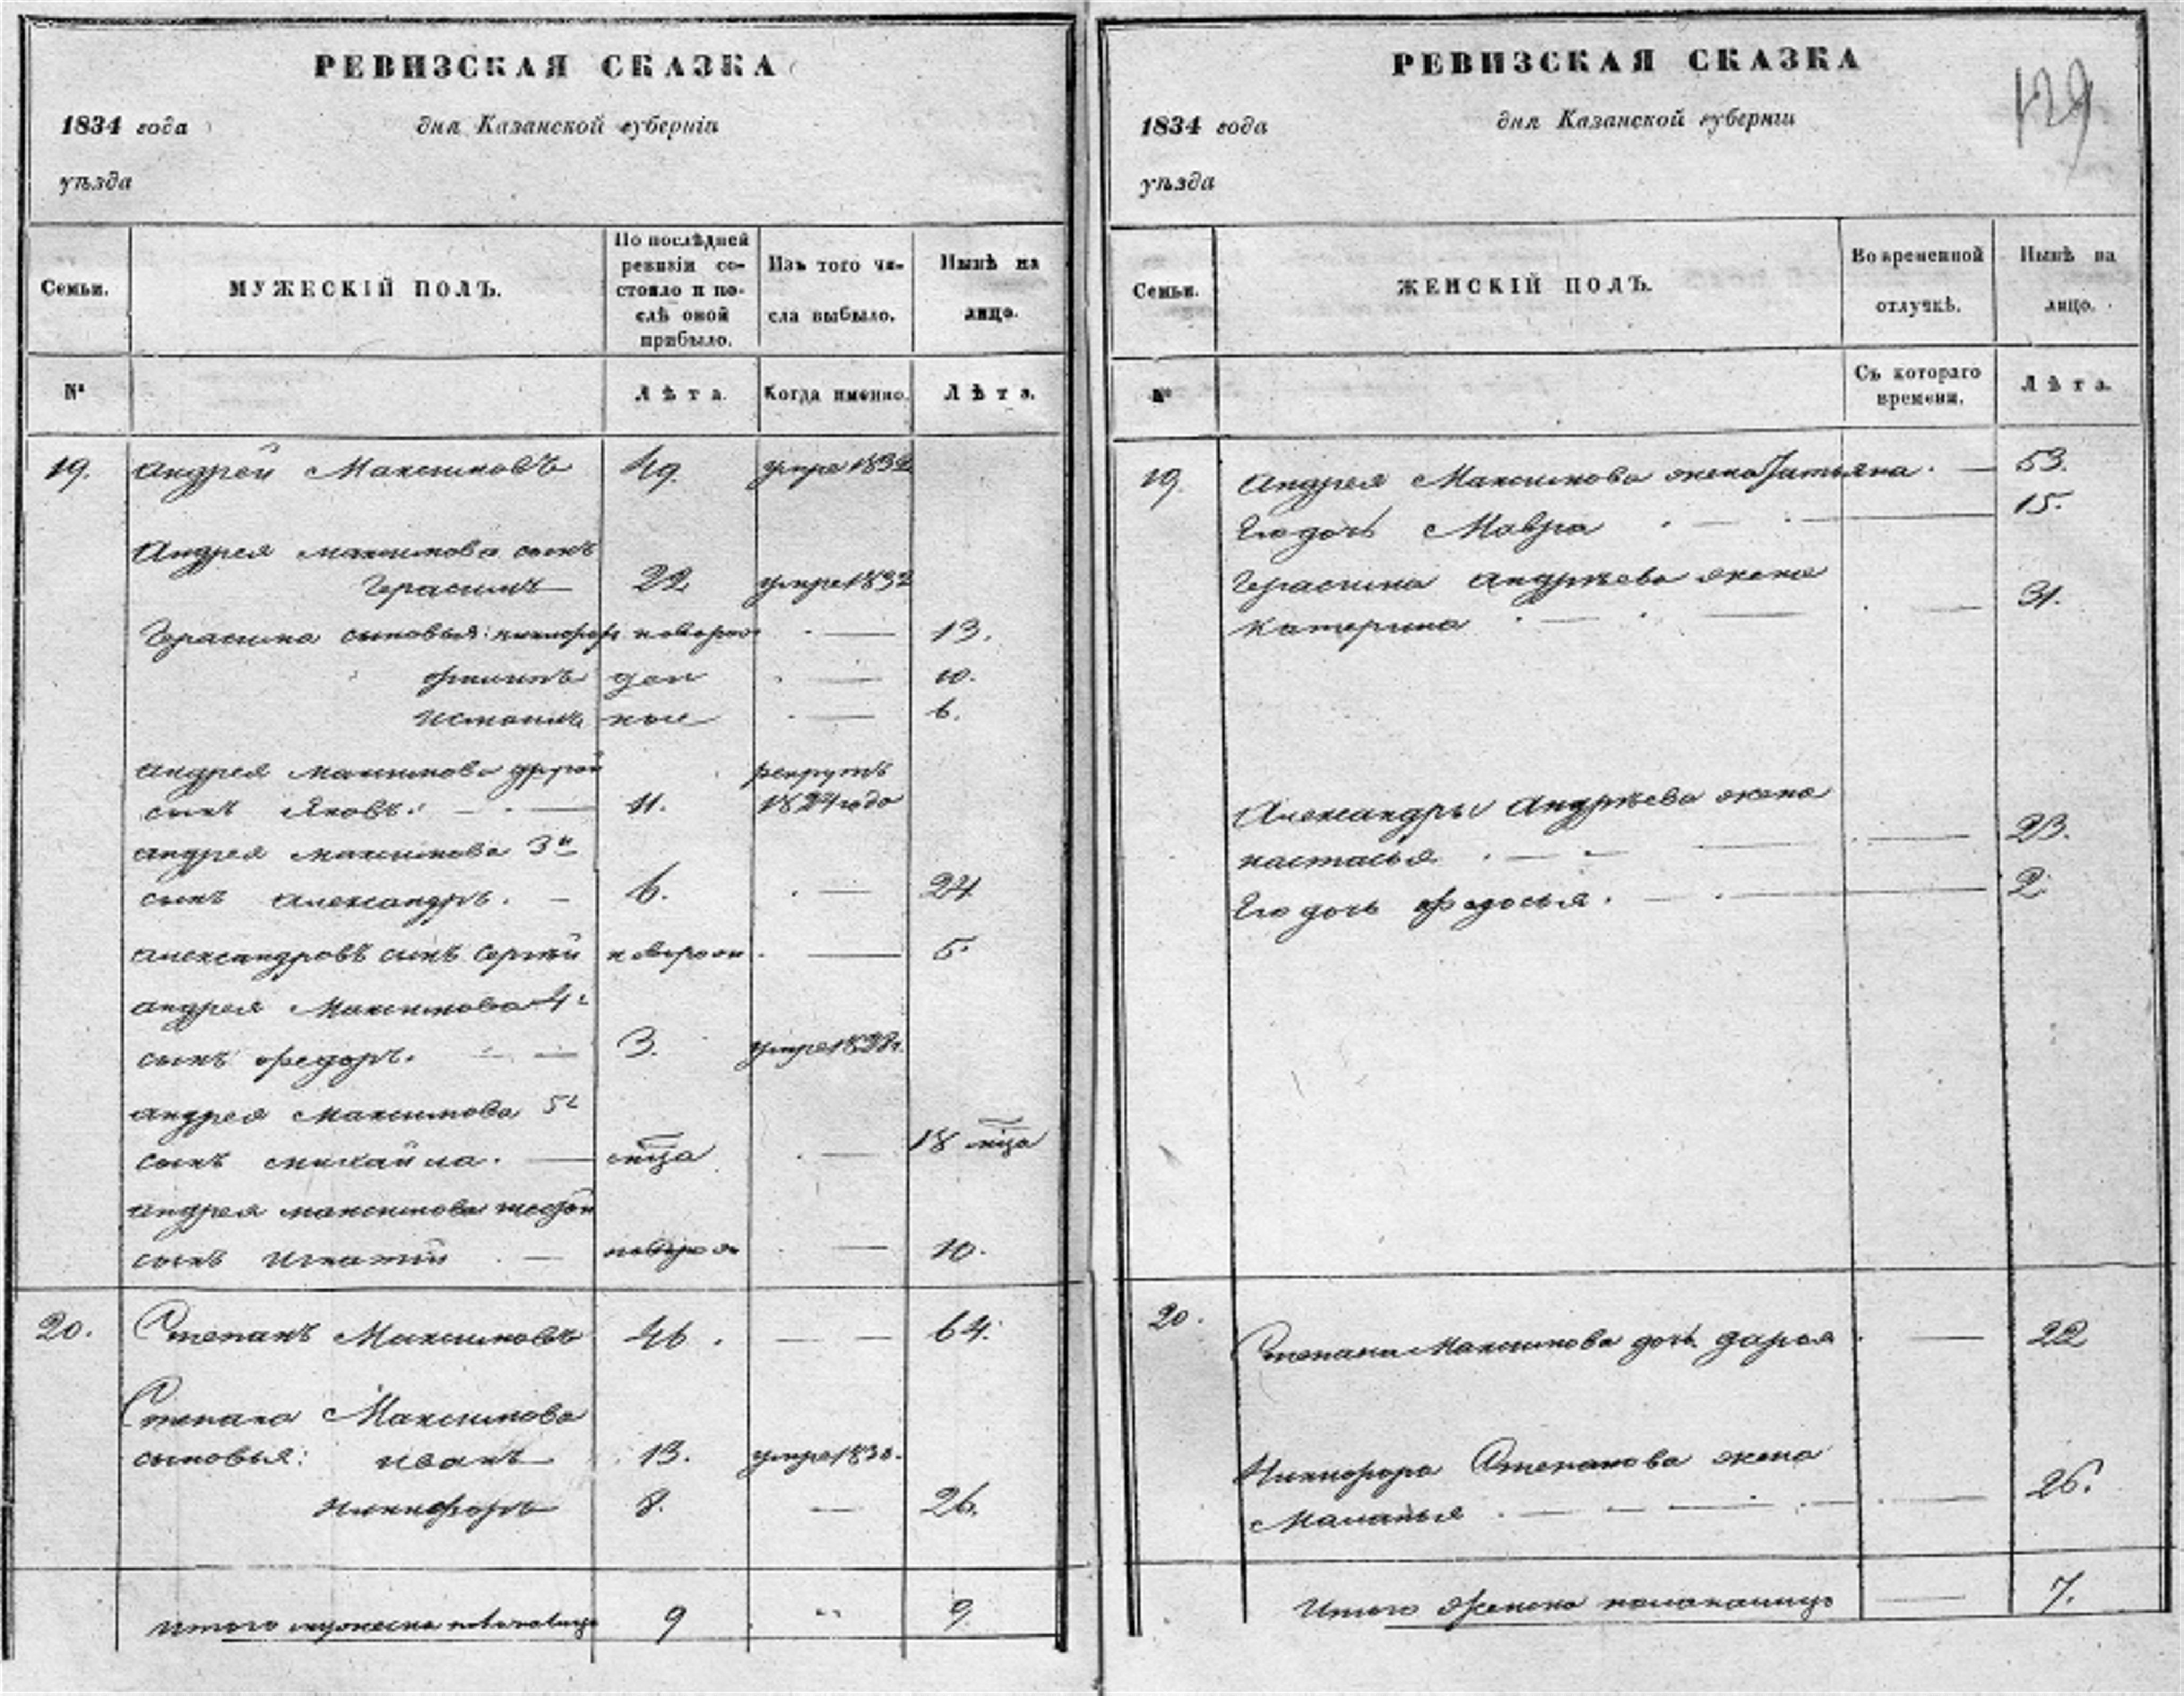 РЕВИЗСКАЯ СКАЗКА
1834 года дня Казанской губерніи
уѣзда
Семьи. МУЖЕСКІЙ ПОЛЪ. По послѣдней ревизіи со- Изъ того чи- Нынѣ на
стояло и по- слѣ оной прибыло. сла выбыло. лицо.
№ Лѣта. Когда именно. Лѣта.
19. Андрей Максимовъ 49. умре 1832
Андрея Максимова сынъ
Герасимъ 22 умре 1832
Герасима сыновья: Никифоръ новорож 13.
Филипъ ден 10.
ные 6.
Андрея Максимова другой рекрутъ
сынъ Яковъ. 11. 1824 года
Андрея Максимова 3й
сынъ Александръ. 6. 24
Александровъ сынъ Сергѣй новорож 5.
Андрея Максимова 4й
сынъ Федоръ. 3. умре
Андрея Максимова 5й
сынъ Михайла. мца 18 мца
Андрея Максимова шестой
сынъ Игнатій новорож 10.
20. Степанъ Максимовъ 46. 64.
Степана Максимова
сыновья: Иванъ 13. умре 1830.
Никифоръ 8. 26.
Итого мужеска пола налицо 9 9.
РЕВИЗСКАЯ СКАЗКА
129
1834 года дня Казанской губерніи
уѣзда
Семьи. ЖЕНСКІЙ ПОЛЪ. Во временной отлучкѣ. Нынѣ на лицо.
№ Съ котораго времени. Лѣта.
19. Андрея Максимова жена Татьяна. 53.
Его дочь Мавра 15.
Герасима Андрѣева жена
Катерина 31.
Александры Андрѣева жена
Настасья 23.
Его дочь Федосья. 2.
20. Степана Максимова дочь Дарья 22
Никифора Степанова жена
Маланья 26.
Итого женска пола налицо 7.